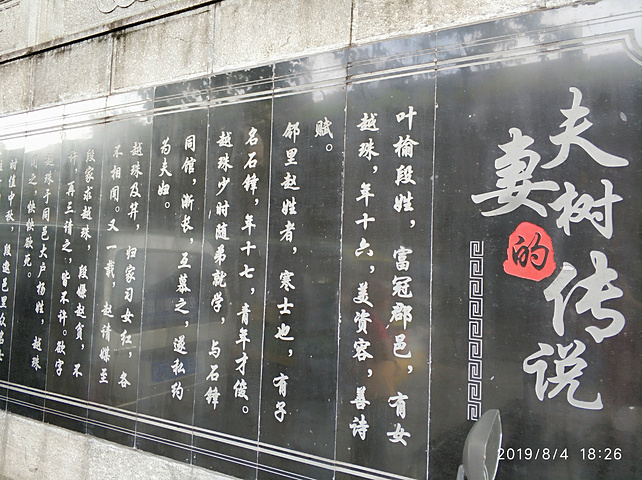 夫妻树的传说
叶榆段姓，富冠郡邑，有女
越珠，年十六，美资容，善诗
赋。
邻里赵姓者，寒士也，有子
名石锋，年十七，青年才俊。
越珠少时随弟就学，与石锋
同馆，渐长，互慕之，遂私约
为夫妇。
越珠及笄，归家习女红，各
不相闻。又一载，赵请媒至
段家求越珠，段嫌赵贫，不
许，再三请之，皆不许。欲字
越珠于同邑大户杨姓，越珠
闻之，怏怏欲死。
时值中秋，段邀邑里众名士
2019/8/4 18:26